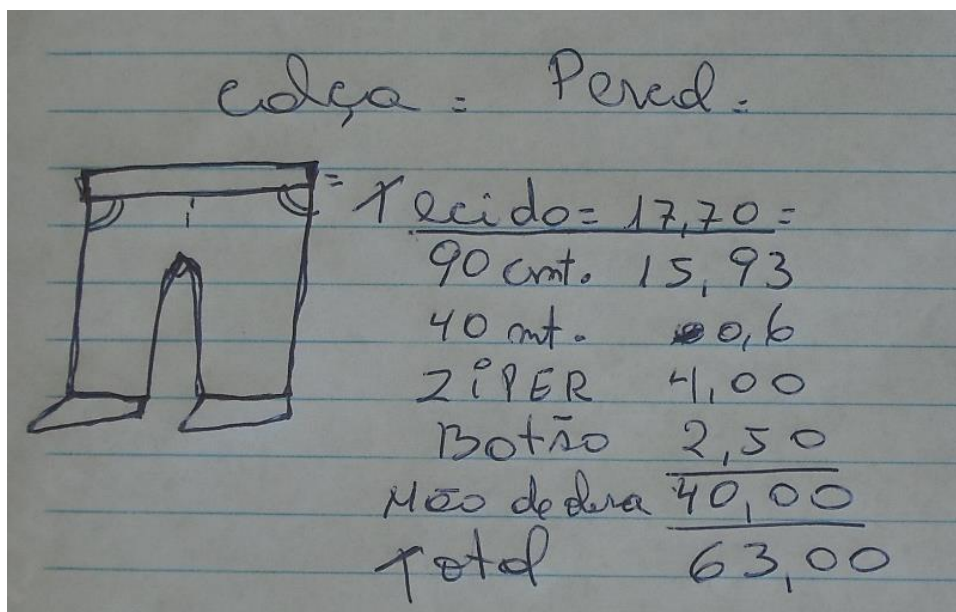 calça = Percal =
= Tecido = 17,70 =
90 cmt. 15,93
40 mt. 0,6
ZíPER 4,00
Botão 2,50
Mão de obra 40,00
Total 63,00